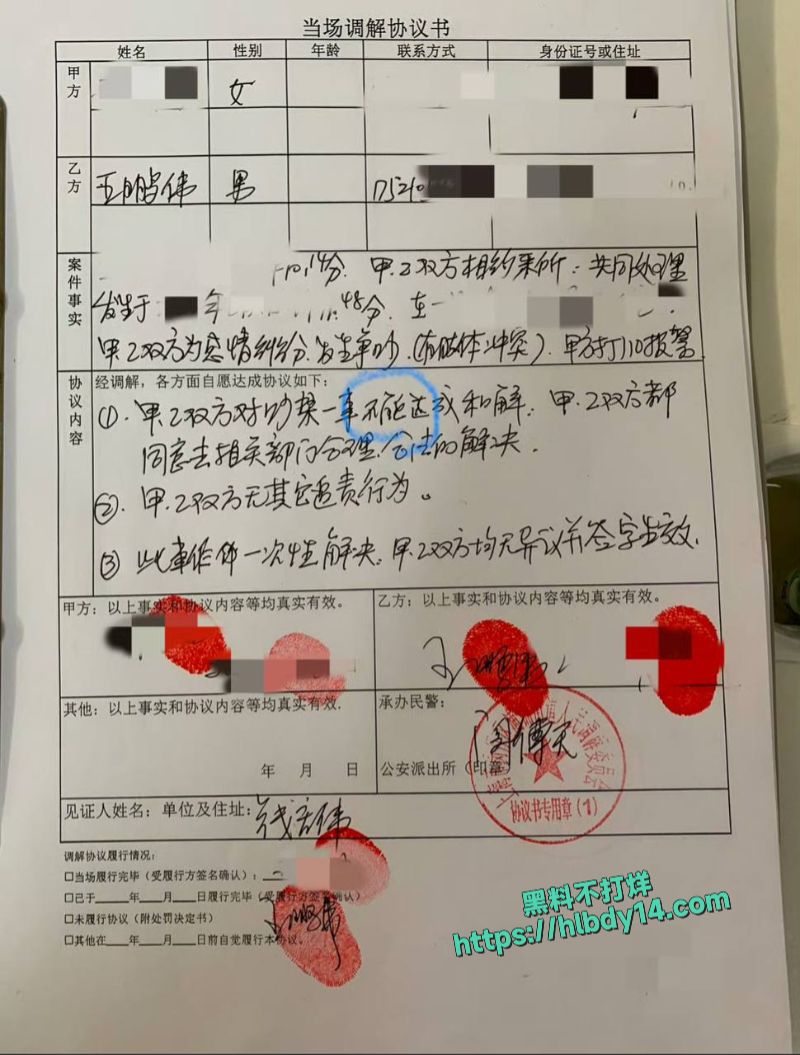 当场调解协议书
姓名 性别 年龄 联系方式 身份证号或住址
甲方 女
乙方 王鹏伟 男 175210
案件事实
14分、甲.乙双方相约来所,共同处理
发生于 年 48分、在一
甲.乙双方为感情纠纷、发生争吵(有肢体冲突)、甲方打110报警
协议内容
经调解,各方面自愿达成协议如下:
①、甲.乙双方对吵架一事不能达成和解、甲.乙双方都
同意去相关部门合理.合法的解决.
②、甲.乙双方无其它追责行为。
③ 此事作伟一次性解决.甲.乙双方均无异议并签字生效.
甲方:以上事实和协议内容等均真实有效。 乙方:以上事实和协议内容等均真实有效。
王鹏伟
其他:以上事实和协议内容等均真实有效. 承办民警:
年 月 日 公安派出所(印章
人民调解委员会
协议书专用章(1)
见证人姓名:单位及住址:
调解协议履行情况:
□当场履行完毕(受履行方签名确认):
□已于___年___月___日履行完毕(受履行方签名确认)
□未履行协议(附处罚决定书)
□其他在___年___月___日前自觉履行本协议。
黑料不打烊
https://hlbdy14.com